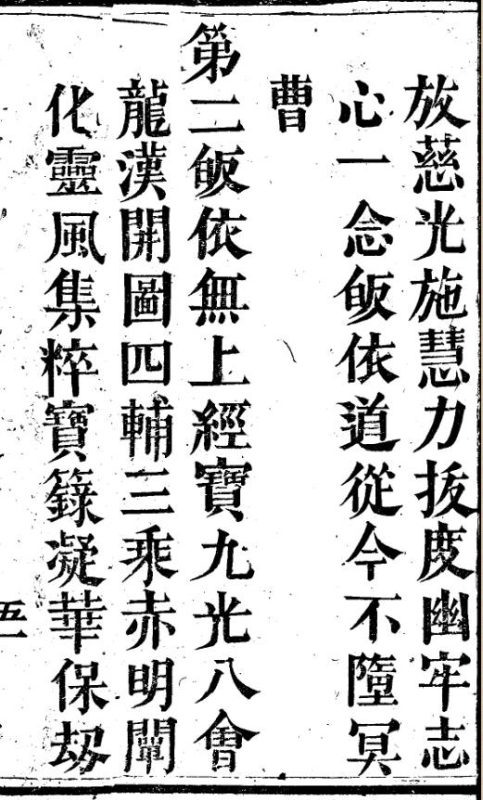 放慈光施慧力拔度幽牢志
心一念皈依道從今不墮冥
曹
第二皈依無上經寶九光八會
龍漢開圖四輔三乘赤明闡
化靈風集粹寶籙凝華保劫
五